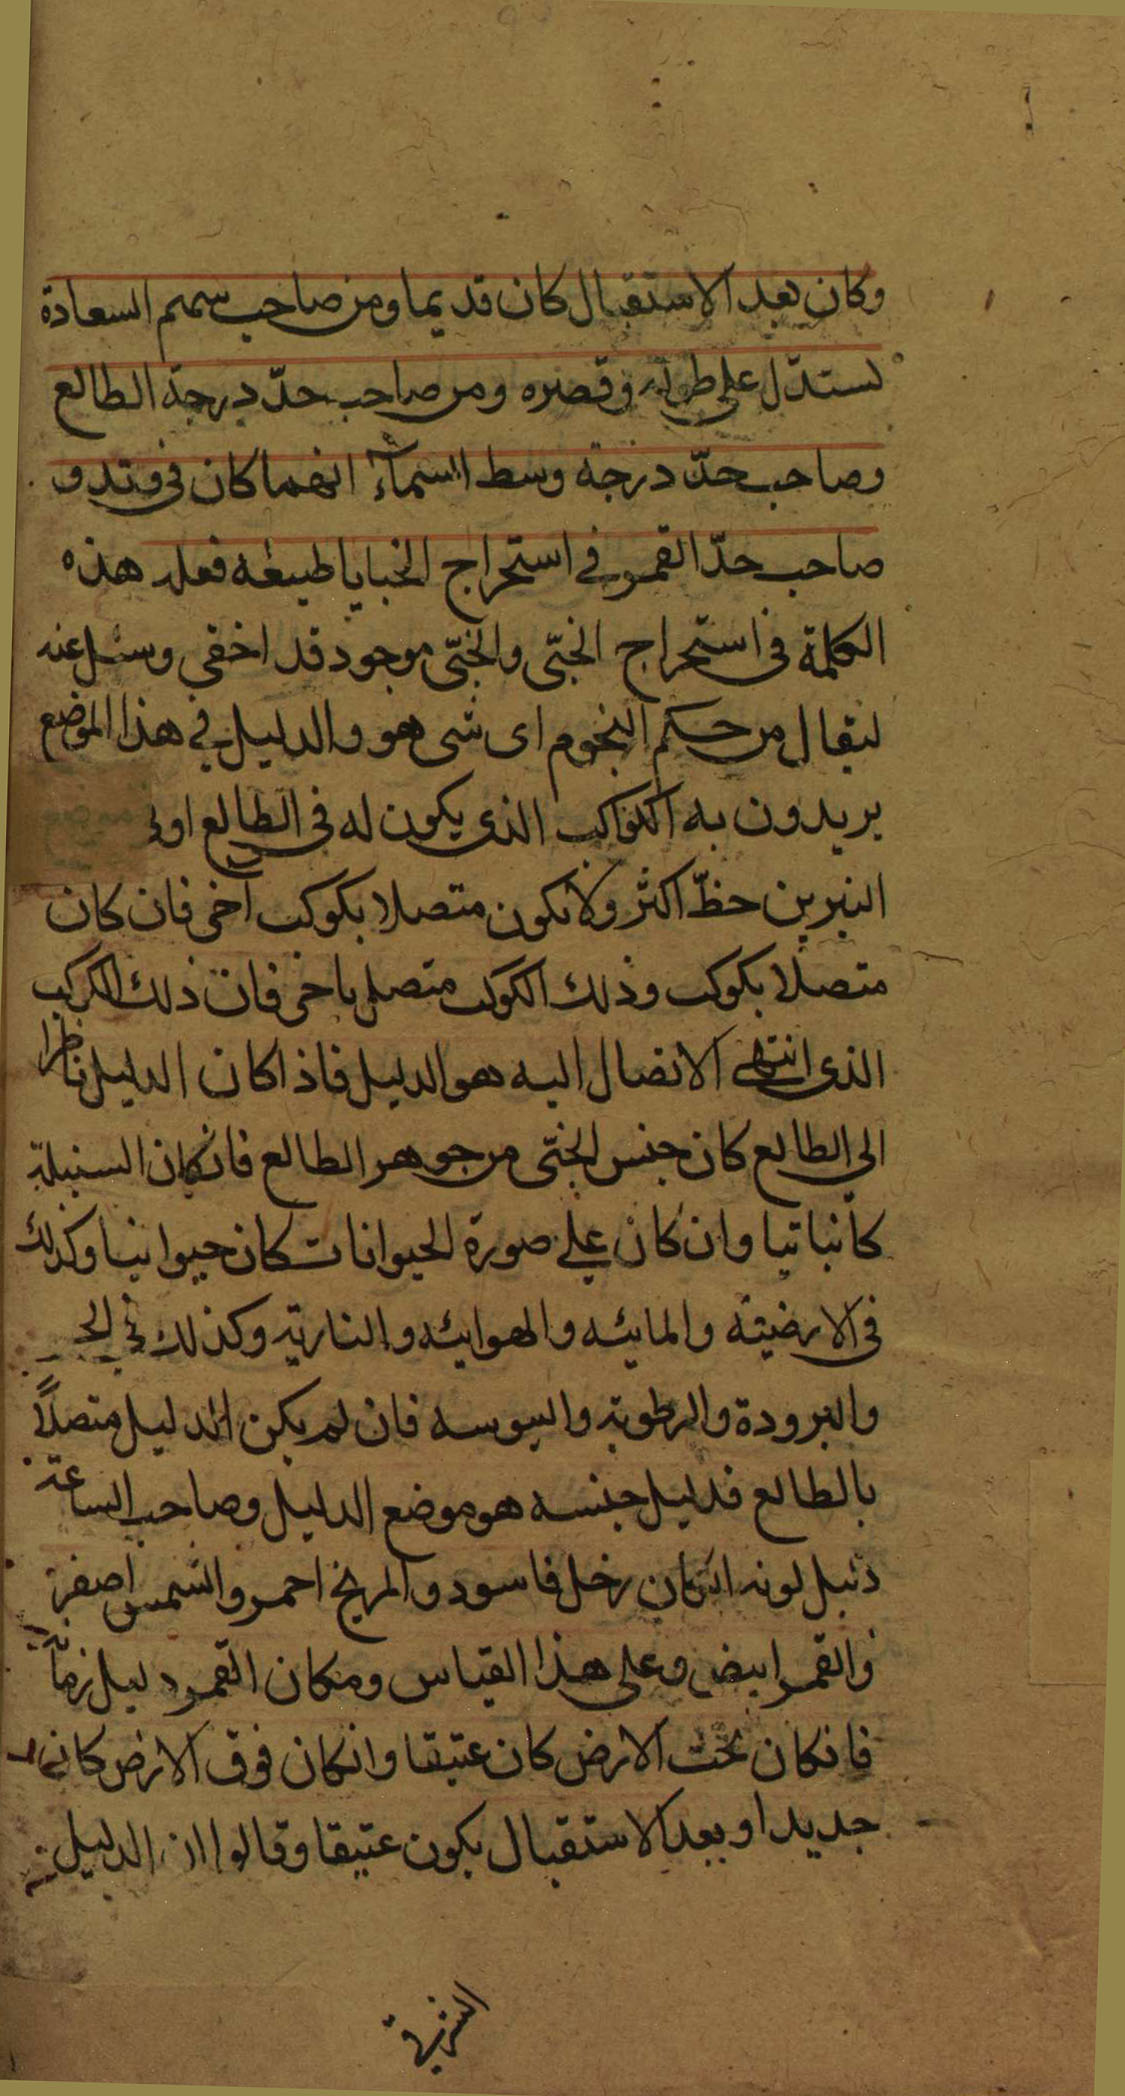 وكان بعد الاستقبال كان قديما ومن صاحب سهم السعادة
يستدل على طوله وقصره ومن صاحب حدّ درجة الطالع
وصاحب حدّ درجة وسط السمآء ايهما كان فى وتد و
صاحب حدّ القمر فى استخراج الخبايا لطيفة فعلم هذه
الكلمة فى استخراج الخبّى والخبّى موجود قد اخفى وسئل عنه
ليقال من حكم النجوم اى شى هو والدليل فى هذا الموضع
يريدون به الكواكب الذى يكون له فى الطالع او فى
النيرين حظّ اكثر ولا يكون متصلا بكوكب اخر فان كان
متصلا بكوكب وذلك الكوكب متصل باخر فان ذلك الكوكب
الذى انتهى الاتصال اليه هو الدليل فاذا كان الدليل ناظرا
الى الطالع كان جنس الخبّى من جوهر الطالع فان كان السنبلة
كا نباتيا وان كان على صورة الحيوانات كان حيوانيا وكذلك
فى الارضية والمائيه والهوائيه والنارية وكذلك فى الحر
والبرودة والرطوبة واليبوسه فان لم يكن الدليل متصلاً
بالطالع فدليل جنسه هو موضع الدليل وصاحب الساعة
دليل لونه انكان زحل فاسود والمريخ احمر والشمس اصفر
والقمر ابيض وعلى هذا القياس ومكان القمر دليل زمانه
فانكان تحت الارض كان عتيقا وانكان فوق الارض كان
جديدا وبعد الاستقبال يكون عتيقا وقالوا ان الدليل